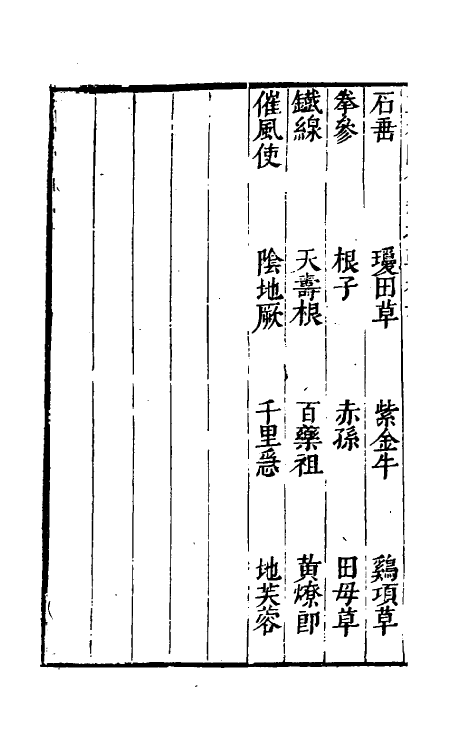 石垂　瓊田草　紫金牛　鷄項草
拳參　根子　赤孫　田母草
鐵線　天壽根　百藥祖　黃燎郎
催風使　陰地厥　千里急　地芙蓉